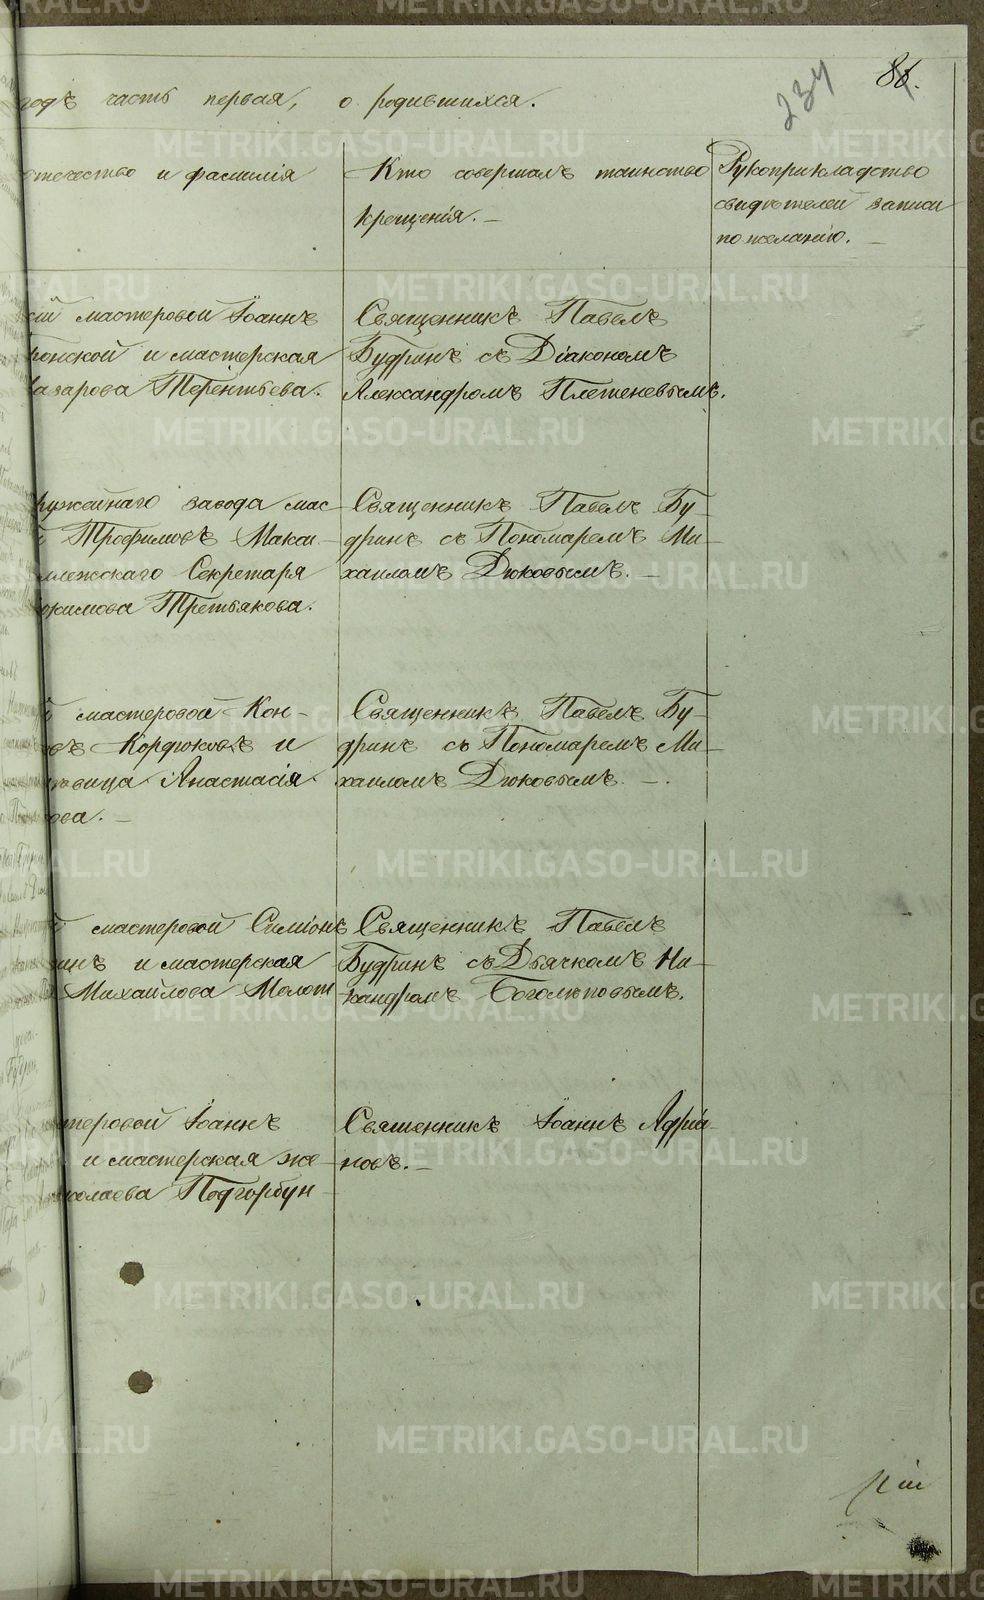 годѣ часть первая, о родившихся.
234
отечество и фамилія
Кто совершалъ таинство
крещенія. —
Рукоприкладство
свидѣтелей записи
по желанію. —
мастеровой Іоаннъ
и мастерская
Назарова Терентьева.
Священникъ Павелъ
Будринъ съ Діакономъ
Александромъ Плетеневымъ.
ружейнаго завода мас-
Трофимовъ Макси-
Секретаря
Третьякова.
Священникъ Павелъ Бу-
дринъ съ Пономаремъ Ми-
хаиломъ Дюковымъ. —
мастеровой Кон-
Кордюковъ и
вица Анастасія
ова. —
Священникъ Павелъ Бу-
дринъ съ Пономаремъ Ми-
хаиломъ Дюковымъ. —
мастеровой Симіонъ
инъ и мастерская
Михайлова Молот
Священникъ Павелъ
Будринъ съ Дьячкомъ Ни-
кандромъ Боголюповымъ.
теровой Іоаннъ
и мастерская же-
колаева Подгорбун-
Священникъ Іоаннъ Адріа-
новъ. —
METRIKI.GASO-URAL.RU